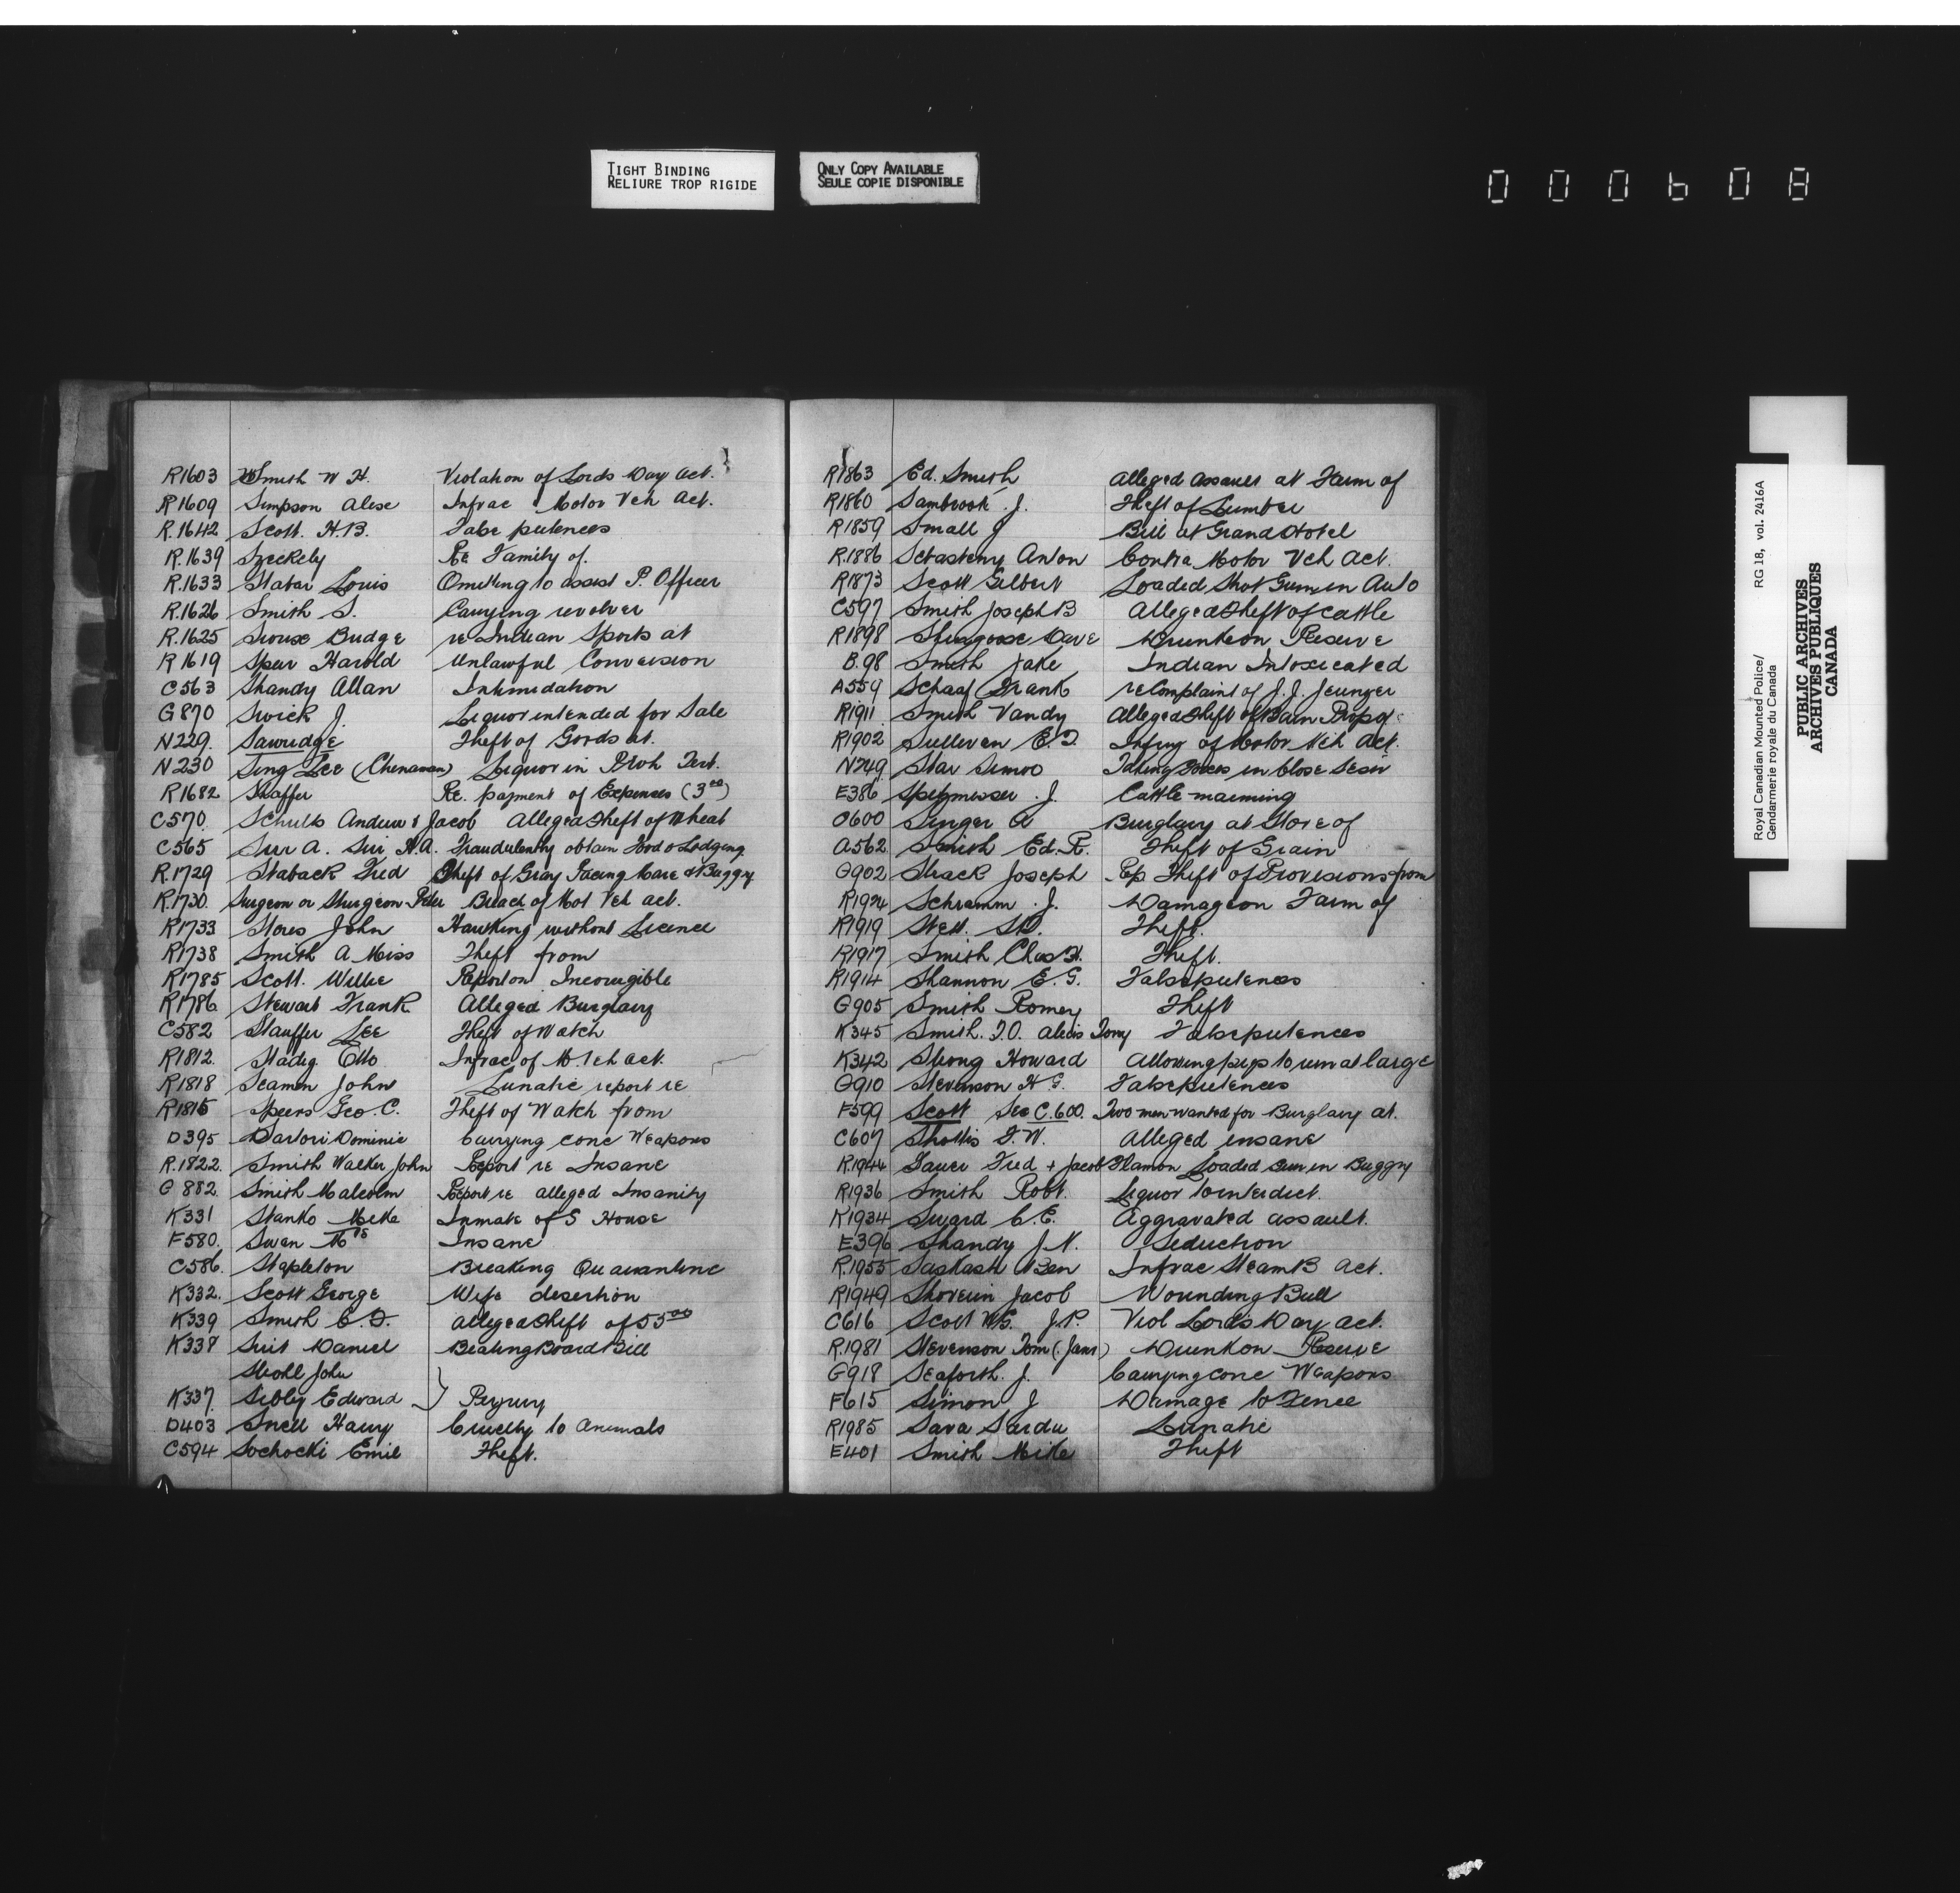 TIGHT BINDING
RELIURE TROP RIGIDE
ONLY COPY AVAILABLE
SEULE COPIE DISPONIBLE
000608
R1603 Smith W H. Violation of Lords Day Act.
R1609 Simpson Infrac Motor Veh Act.
R.1642 Scott. H.B. False pretences
R.1639 Szeckely Re Family of.
R.1633 Louis Omitting to assist P. Officer
R.1626 Smith S. Carrying revolver
R.1625 Budge re Indian Sports at
R1619 Spear Harold Unlawful Conversion
C563 Shandy Allan Intimidation
G870 Swick J. Liquor intended for Sale
N229. Sawridge Theft of Goods at.
N230 Sing Lee (Chinaman) Liquor in Proh Terr.
R1682 Shaffer Re. payment of Expenses (3⁰⁰)
C570. Schultz Andrew & Jacob Alleged Theft of Wheat
C565 Sir A. Sir H.A. Fraudulently obtain Food & Lodging
R.1729 Staback Fred Theft of Gray Facing Mare & Buggy
R.1730. Surgeon or Sturgeon Peter Breach of Mot Veh act.
R1733 Stores John Hawking without Licence
R1738 Smith A Miss Theft from
R1785 Scott. Willie Report on Incorrigible
R1786 Stewart Frank Alleged Burglary
C582 Stauffer Lee Theft of Watch
R1812. Stadig Otto Infrac of M. Veh act.
R1818 Seamen John Lunatic report re
R1815 Speers Geo. C. Theft of Watch from
D395 Sartori Dominic Carrying conc Weapons
R.1822. Smith Walker John Report re Insane
G 882. Smith Malcolm Report re alleged Insanity
K331 Stanko Mike Inmate of G House
F580. Swan Insane
C586. Stapleton Breaking Quarantine
K332. Scott George Wife desertion
K339 Smith C. F. alleged Theft of 55⁰⁰
K338 Daniel Beating Board Bill
Stroll John
K337. Sibley Edward } Perjury
D403 Snell Harry Cruelty to Animals
C594 Sochocki Emil Theft.
R1863 Ed. Smith Alleged Assault at Farm of
R1860 Sambrook J. Theft of Lumber
R1859 Small J Bill at Grand Hotel
R.1886 Anton Contra Motor Veh Act.
R1873 Scott Gilbert Loaded Shot Gun in Auto
C597 Smith Joseph B Alleged Theft of Cattle
R1898 Dave Drunk on Reserve
B.98 Smith Jake Indian Intoxicated
A559 Schaaf Frank re Complaint of J. J.
R1911 Smith Vandy Alleged Theft of Barn
R1902 Sulleven E.T. Infring of Motor Veh Act.
N249 Star Simoo Taking in Close Seson
E386 J. Cattle maiming
O600 Singer A Burglary at Store of
A562 Smith Ed. R. Theft of Grain
G902 Strack Joseph Rep Theft of Provisions from
R1924 Schramm J. Damage on Farm of
R1919 Theft.
R1917 Smith Chas H. Theft.
R1914 Shannon E. G. False pretences
G905 Smith Romey Theft
K345 Smith. T.O. alias Tony False pretences
K342 Strong Howard Allowing pigs to run at large
G910 Stevenson H G. False pretences
F599 Scott See C.600. Two men wanted for Burglary at.
C607 Shollis F.W. Alleged insane
R.1944 Sauer Fred & Jacob Flamon Loaded Gun in Buggy
R1936 Smith Robt. Liquor to interdict.
K1934 Sward C.E. Aggravated assault.
E396 Shandy J.N. Seduction
R.1955 Saskash Ben Infrac Steam B Act.
R1949 Jacob Wounding Bull
C616 Scott W.G. J.P. Viol Lords Day act.
R.1981 Stevenson Tom (Jans) Drunk on Reserve
G918 Seaforth. J. Carrying conc Weapons
F615 Simon J Damage to Fence
R1985 Sava Sardu Lunatic
E401 Smith Mike Theft
Royal Canadian Mounted Police/ RG 18, vol. 2416A
Gendarmerie royale du Canada
PUBLIC ARCHIVES
ARCHIVES PUBLIQUES
CANADA